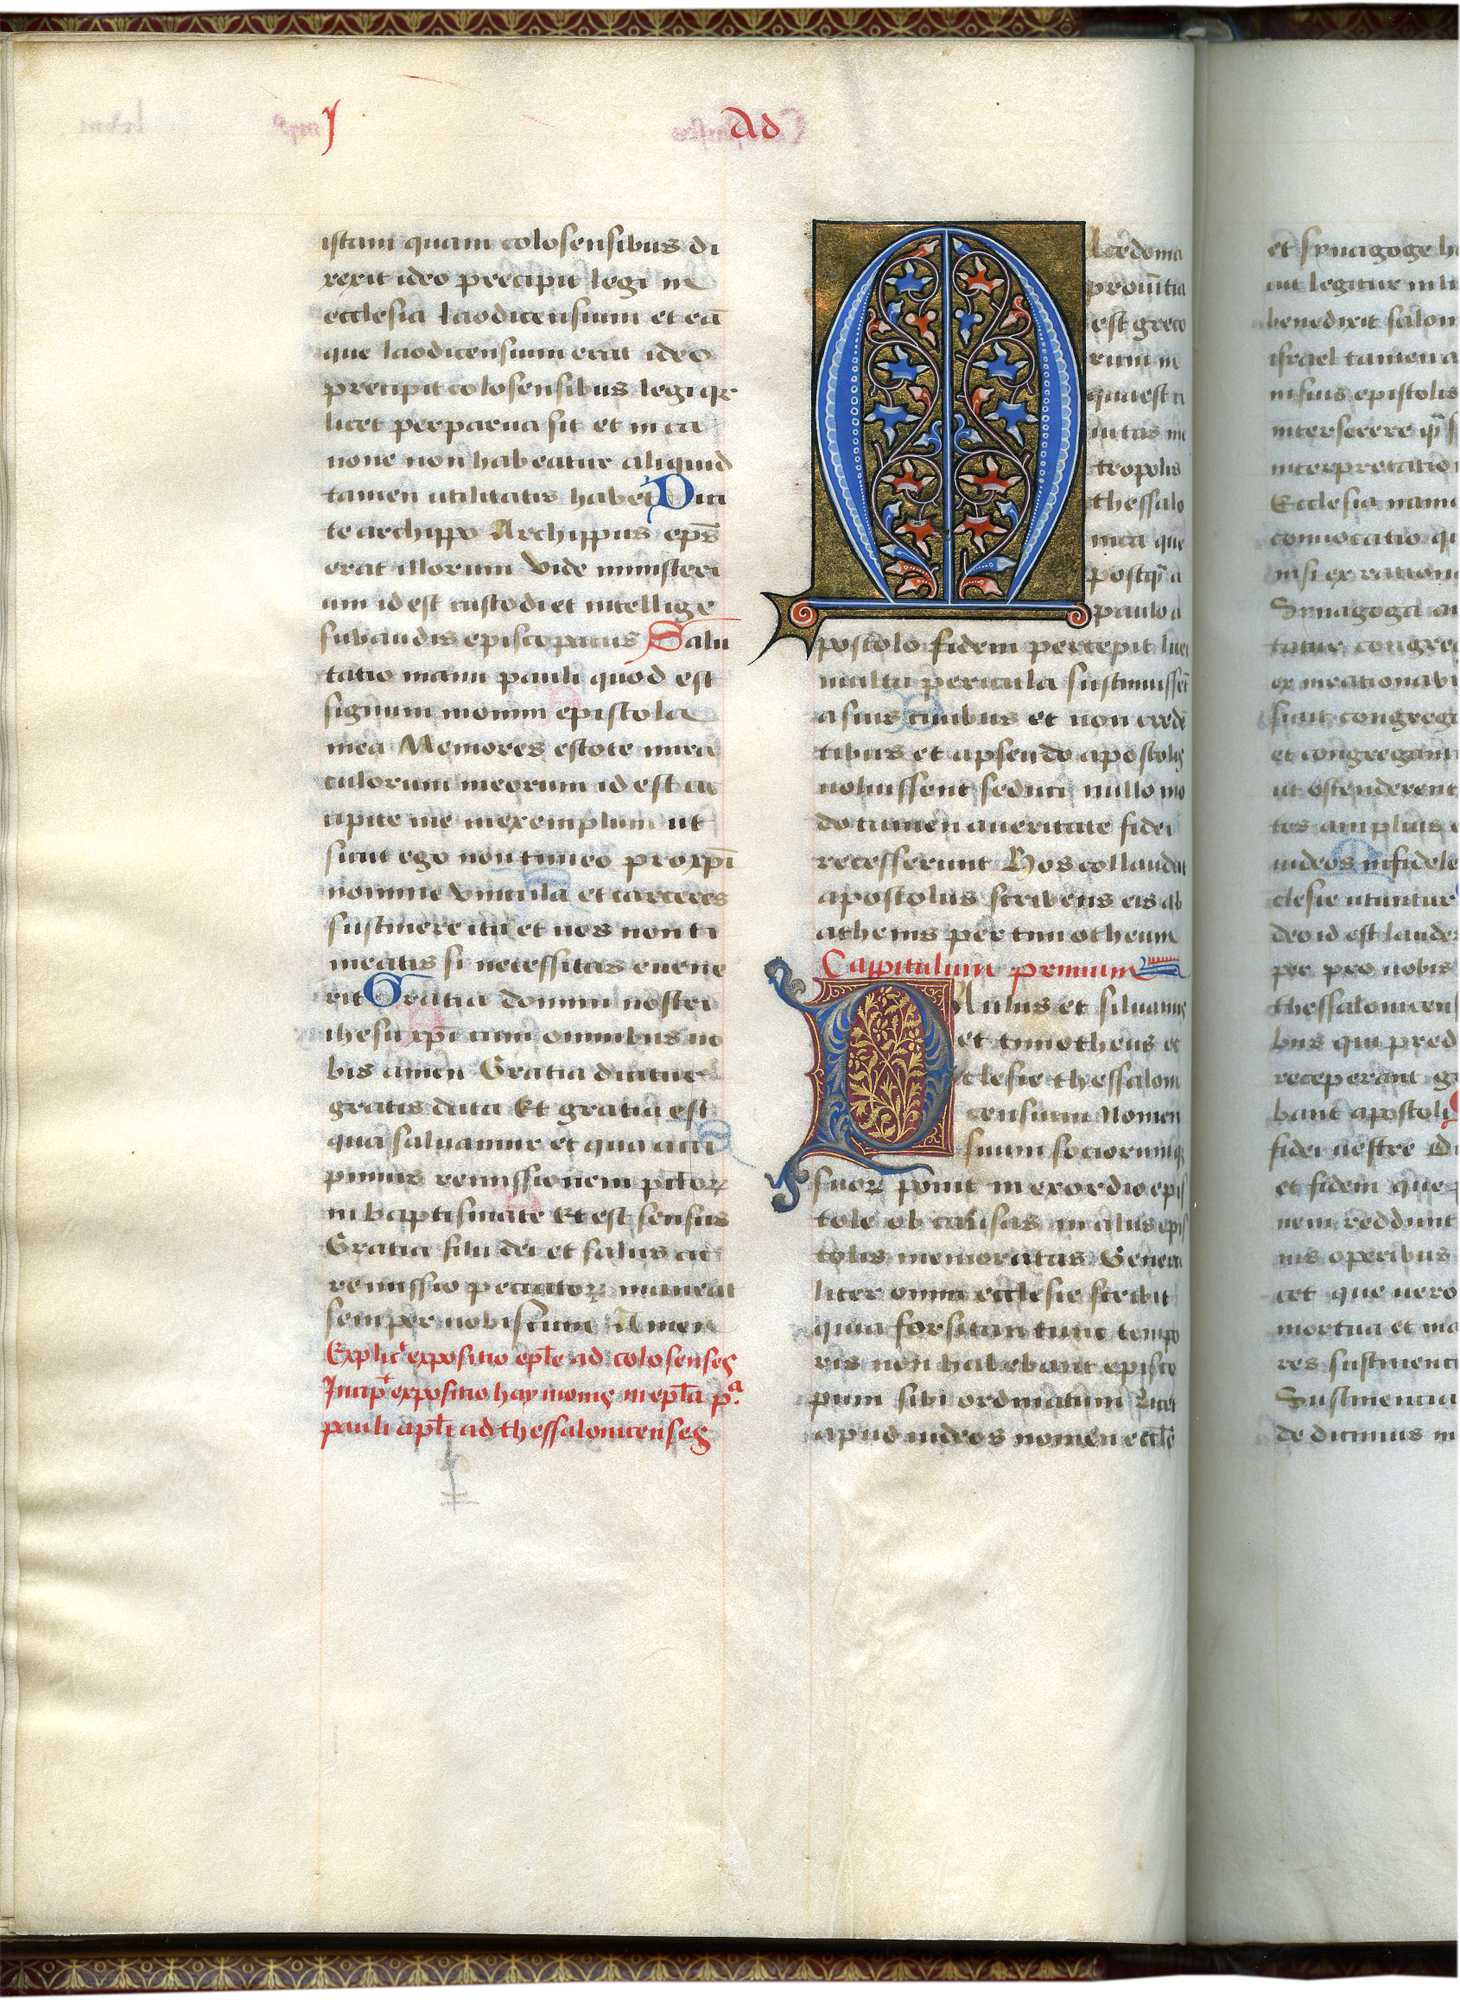 J
Ad
istam quam colosensibus di
rexit ideo precipit legi in
ecclesia laodicensium et eā
que laodicensium erat ideo
precipit colosensibus legi qꝛ
licet perparua sit et in ca
none non habeatur aliquid
tamen utilitatis habet Dici
te archippo Archippus ep̄s
erat illorum Vide ministeri
um id est custodi et intellige
subaudis episcopatus Salu
tatio manu pauli quod est
signum in omni epistola
mea Memores estote uincu
culorum meorum id est ac
cipite me in exemplum ut
sicut ego non timeo pro xp̄i
nomine vincula et carceres
sustinere ita et uos non ti
meatis si necessitas euene
rit Gratia domini nostri
ihesu xp̄i cum omnibus uo
bis amen Gratia dicitur
gratis data Et gratia est
qua saluamur et qua acci
pimus remissionem pctoꝝ
in baptismate Et est sensus
Gratia filii dei et salus ac
remissio peccatoꝝ maneat
semper uobiscum Amen
Explicͭ expositio ep̄le ad colosenses
Incipͭ expositio haymonis in ep̄la pᵃ.
pauli apl̄i ad thessalonicenses
Macedonia
prouītia
est greco
rum in
qua est ci
uitas me
tropolis
thessalo
nica que
postq̄ a
paulo a
postolo fidem percepit licet
multa pericula sustinuissēt
a suis ciuibus et non credē
tibus et a pseudo apostolis
uoluissent seduci nullo mo
do tamen a ueritate fidei
recesserunt Hos collaudat
apostolus scribens eis ab
athenis per timotheum
Capitulum primum
PAulus et siluanus
et timotheus ec
clesie thessaloni
censium Nomen
suum sociorumqꝫ
suoꝝ ponit in exordio epis
tole ob causas in aliis epis
tolis memoratas Genera
liter omni ecclesie scribit
quia forsitan tunc tempo
ris non habebant episco
pum sibi ordinatum Licet
apud iudeos nomen eccl̄e
et synagoge h
ut legitur in li
benedixit salom
israel tamen a
in suis epistolis
interserere q̄
interpretatio
Ecclesia namq
conuocatio qu
nisi ex rationa
Synagoga au
tatur congreg
ex irrationabi
sicut congreg
et congregant
ut ostenderent
tes amplius
iudeos infidele
clesie utuntur
deo id est laudes
per pro uobis
thessalonicen
bus qui pred
receperant g
bant apostoli
fidei uestre Di
et fidem que
nem reddunt
nis operibus
cet que uero
mortua et ma
res sustinent
Sustinentia
de dicimus in